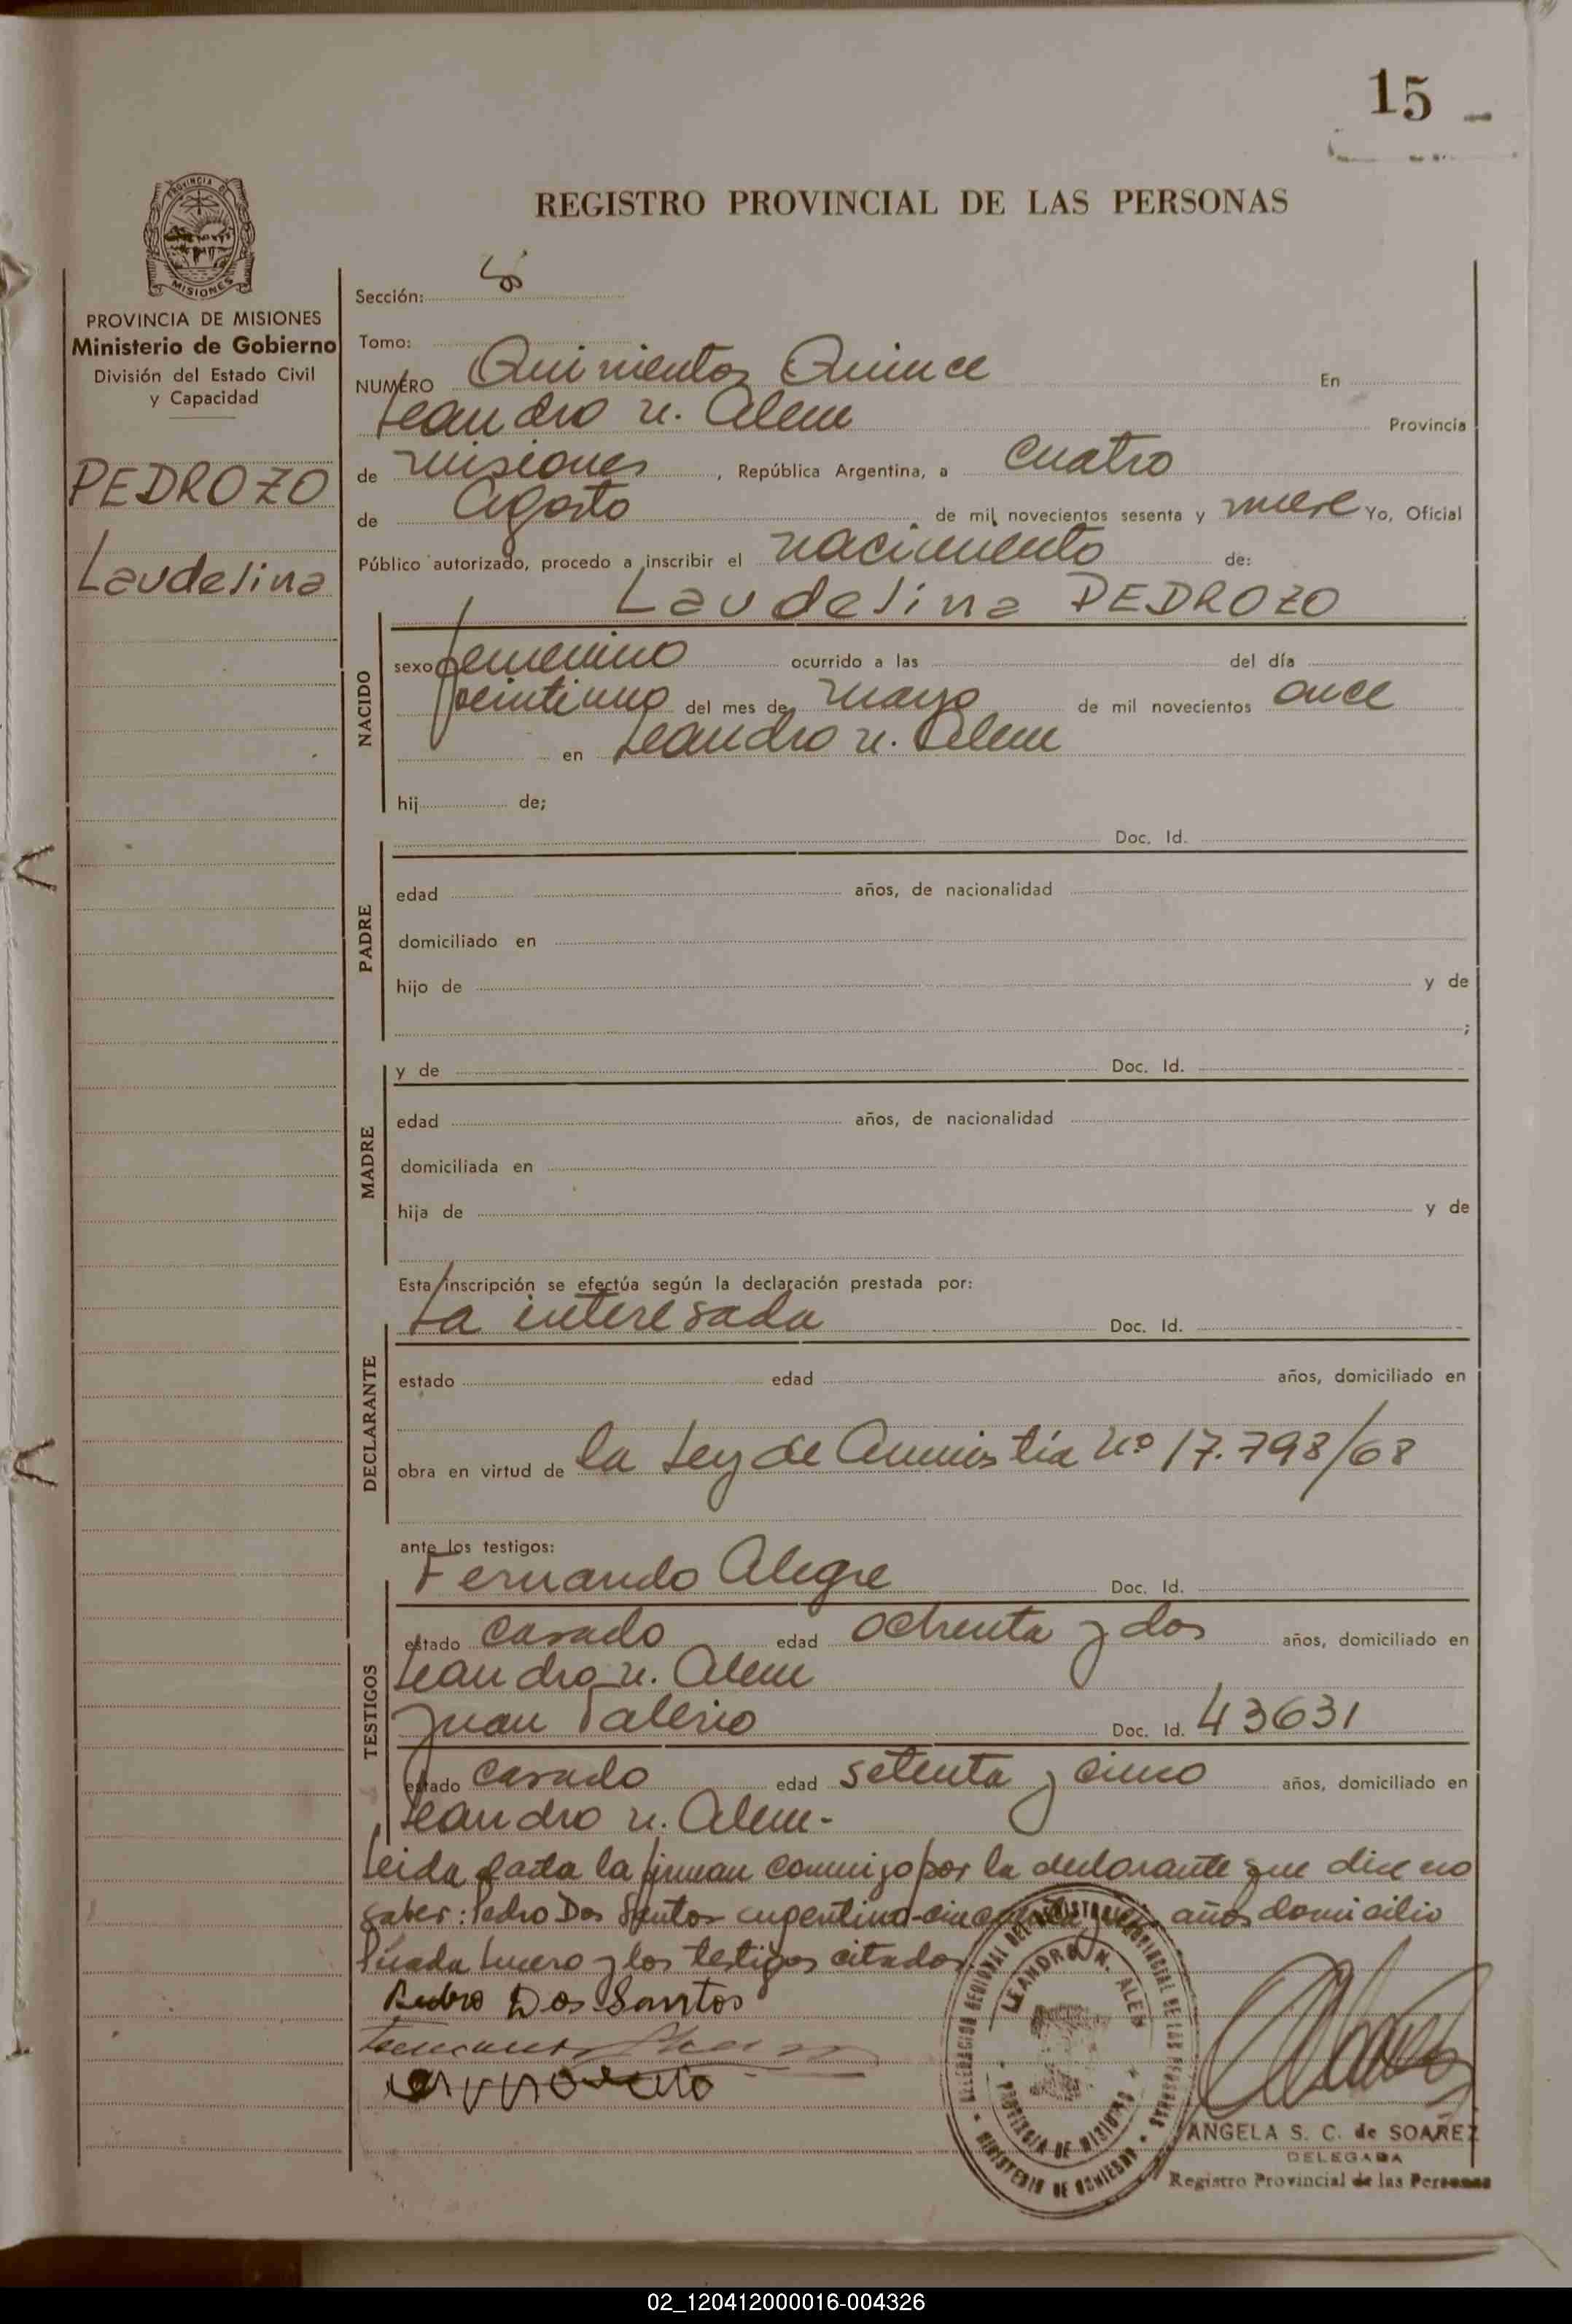 15
REGISTRO PROVINCIAL DE LAS PERSONAS
PROVINCIA DE MISIONES
MISIONES
PROVINCIA DE MISIONES
Ministerio de Gobierno
División del Estado Civil
y Capacidad
PEDROZO
Laudelina
Sección:
Tomo:
NUMERO Quinientos Quince En
Leandro N. Alem Provincia
de Misiones, República Argentina, a cuatro
de Agosto de mil novecientos sesenta y nueve Yo, Oficial
Público autorizado, procedo a inscribir el nacimiento de:
Laudelina PEDROZO
NACIDO
sexo femenino ocurrido a las del día
veintiuno del mes de mayo de mil novecientos once
en Leandro N. Alem
hij de;
Doc. Id.
PADRE
edad años, de nacionalidad
domiciliado en
hijo de y de
;
MADRE
y de Doc. Id.
edad años, de nacionalidad
domiciliada en
hija de y de
Esta inscripción se efectúa según la declaración prestada por:
La interesada Doc. Id.
DECLARANTE
estado edad años, domiciliado en
obra en virtud de la Ley de Amnistía Nº 17.798/68
ante los testigos:
Fernando Alegre Doc. Id.
TESTIGOS
estado casado edad ochenta y dos años, domiciliado en
Leandro N. Alem
Juan Valerio Doc. Id. 43631
estado casado edad setenta y cinco años, domiciliado en
Leandro N. Alem-
Leida el acta la firman conmigo por la declarante que dice no
saber: Pedro Dos Santos argentino-cincuenta años domicilio
Picada y los testigos citados
Pedro Dos Santos
DELEGACION REGIONAL DEL REGISTRO PROVINCIAL DE LAS PERSONAS
LEANDRO N. ALEM
PROVINCIA DE MISIONES
MINISTERIO DE GOBIERNO
ANGELA S. C. de SOAREZ
DELEGADA
Registro Provincial de las Personas
02_120412000016-004326